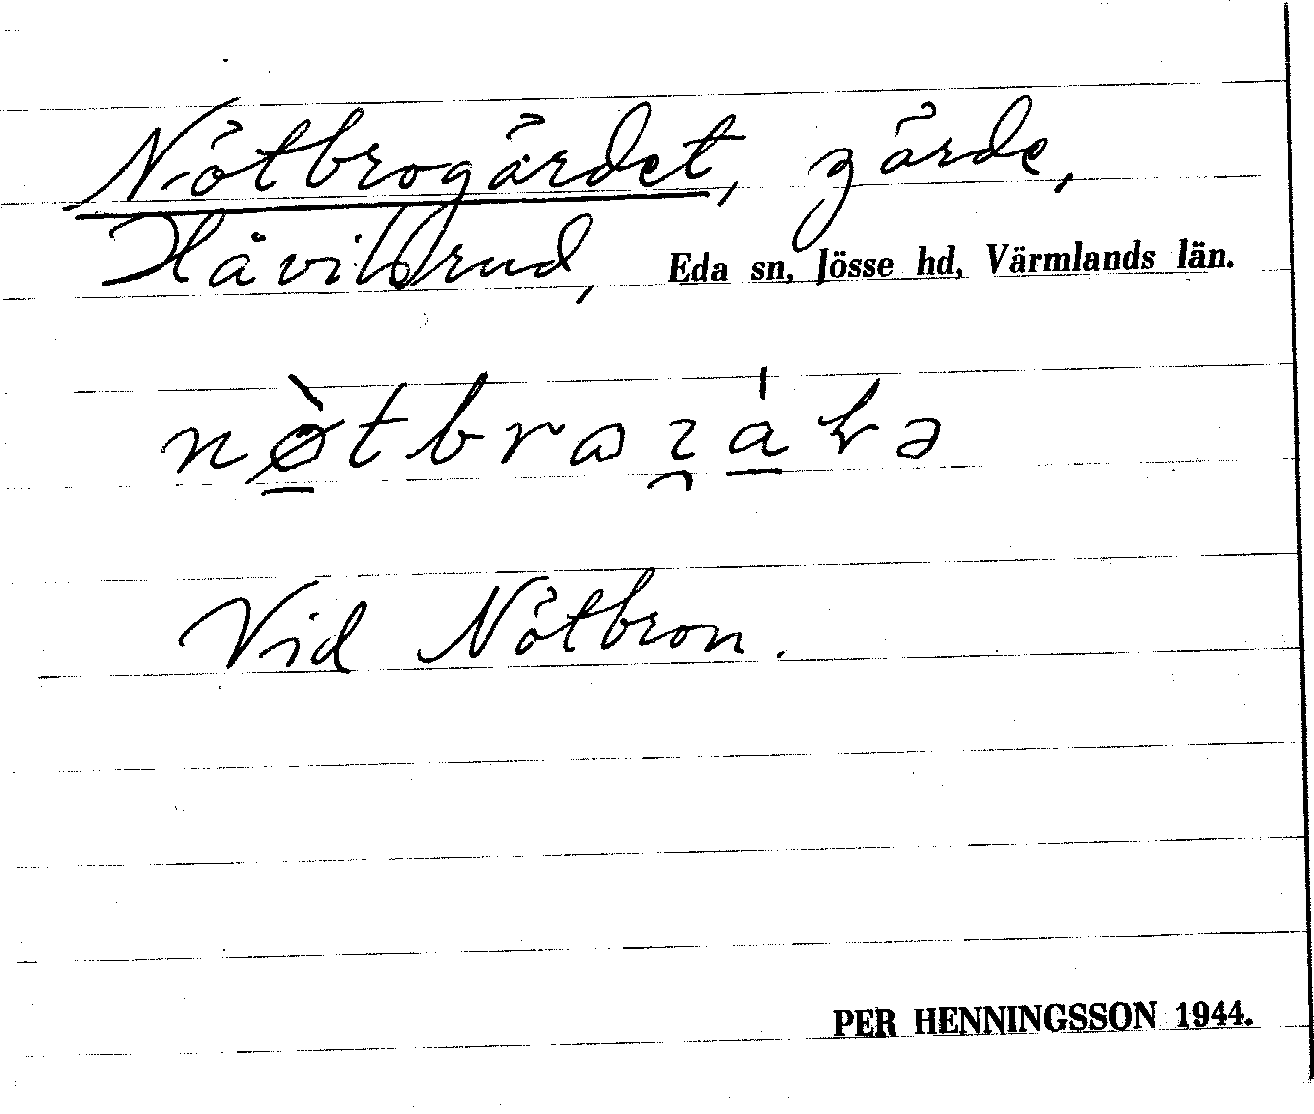 Nötbrogärdet, gärde,
Håvilsrud, Eda sn, Jösse hd, Värmlands län.
Vid Nötbron.
PER HENNINGSSON 1944.